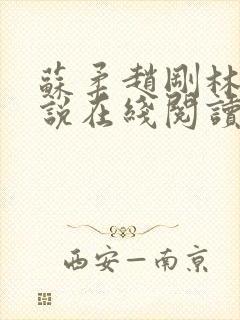 蘇柔趙剛林
說在綫閱讀
西安—南京